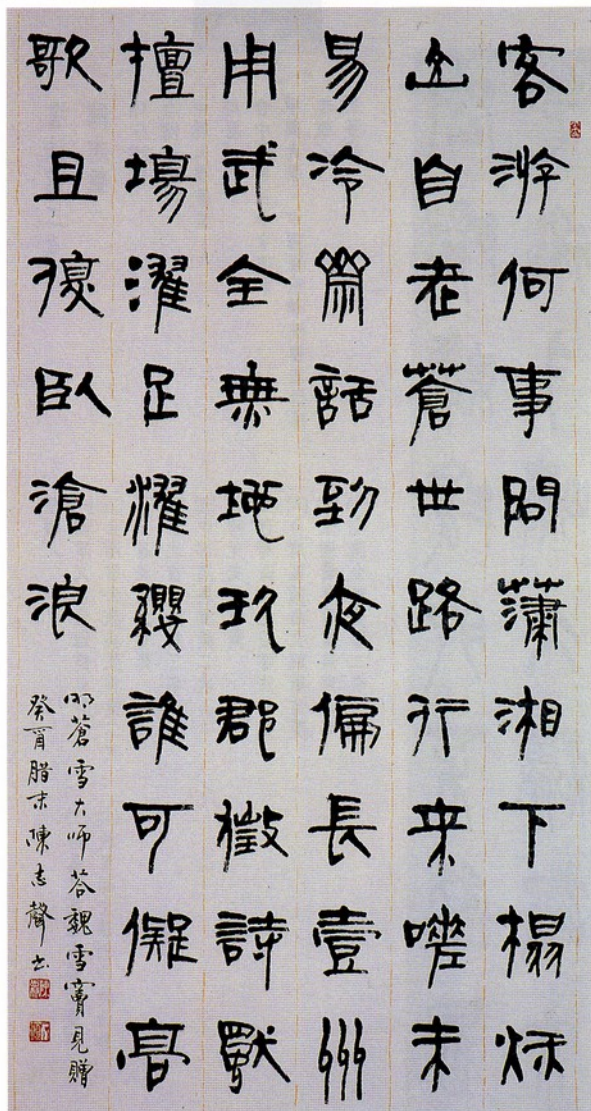 客游何事問瀟湘下榻秋
山自老蒼世路行來嗟未
易冷齋話到夜偏長壹州
用武全無地玖郡徵詩獨
擅場濯足濯纓誰可儗高
歌且復臥滄浪
明蒼雪大师答魏雪竇見贈
癸酉腊末陳志聲书